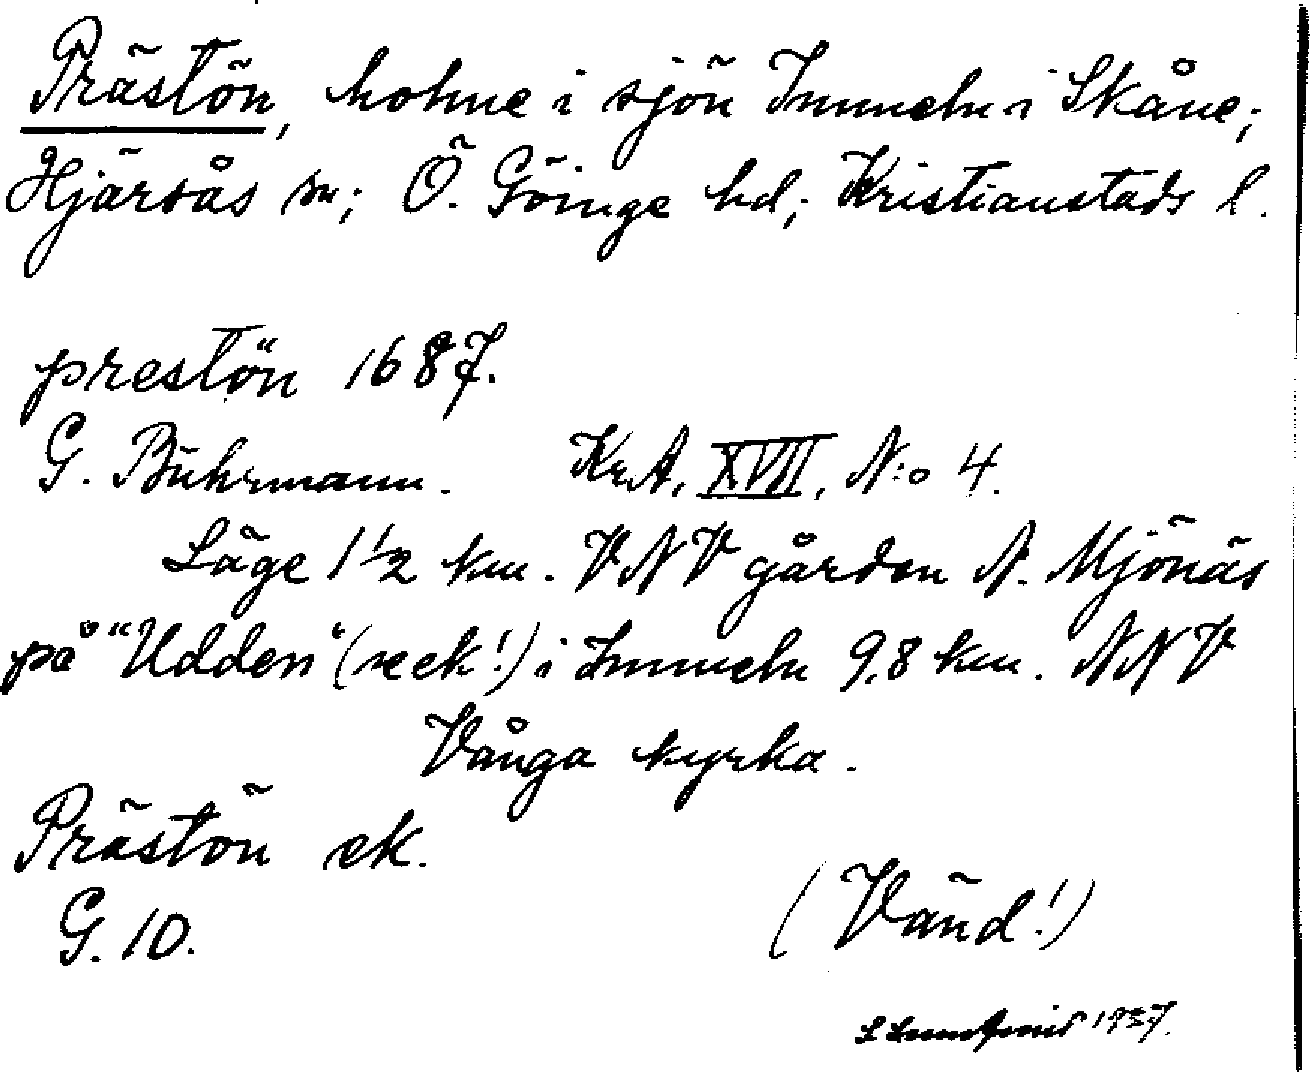 Prästön, holme i sjön Immeln i Skåne;
Hjärsås sn; Ö. Göinge hd; Kristianstads l.
prestön 1687.
G. Buhrmann. Kr.A. XVII, N:o 4.
Läge 1 1/2 km. VNV gården N. Mjönäs
på "Udden" (se ek!) i Immeln 9,8 km. NNV
Vånga kyrka.
Prästön ek.
G. 10.
(Vänd!)
1937.